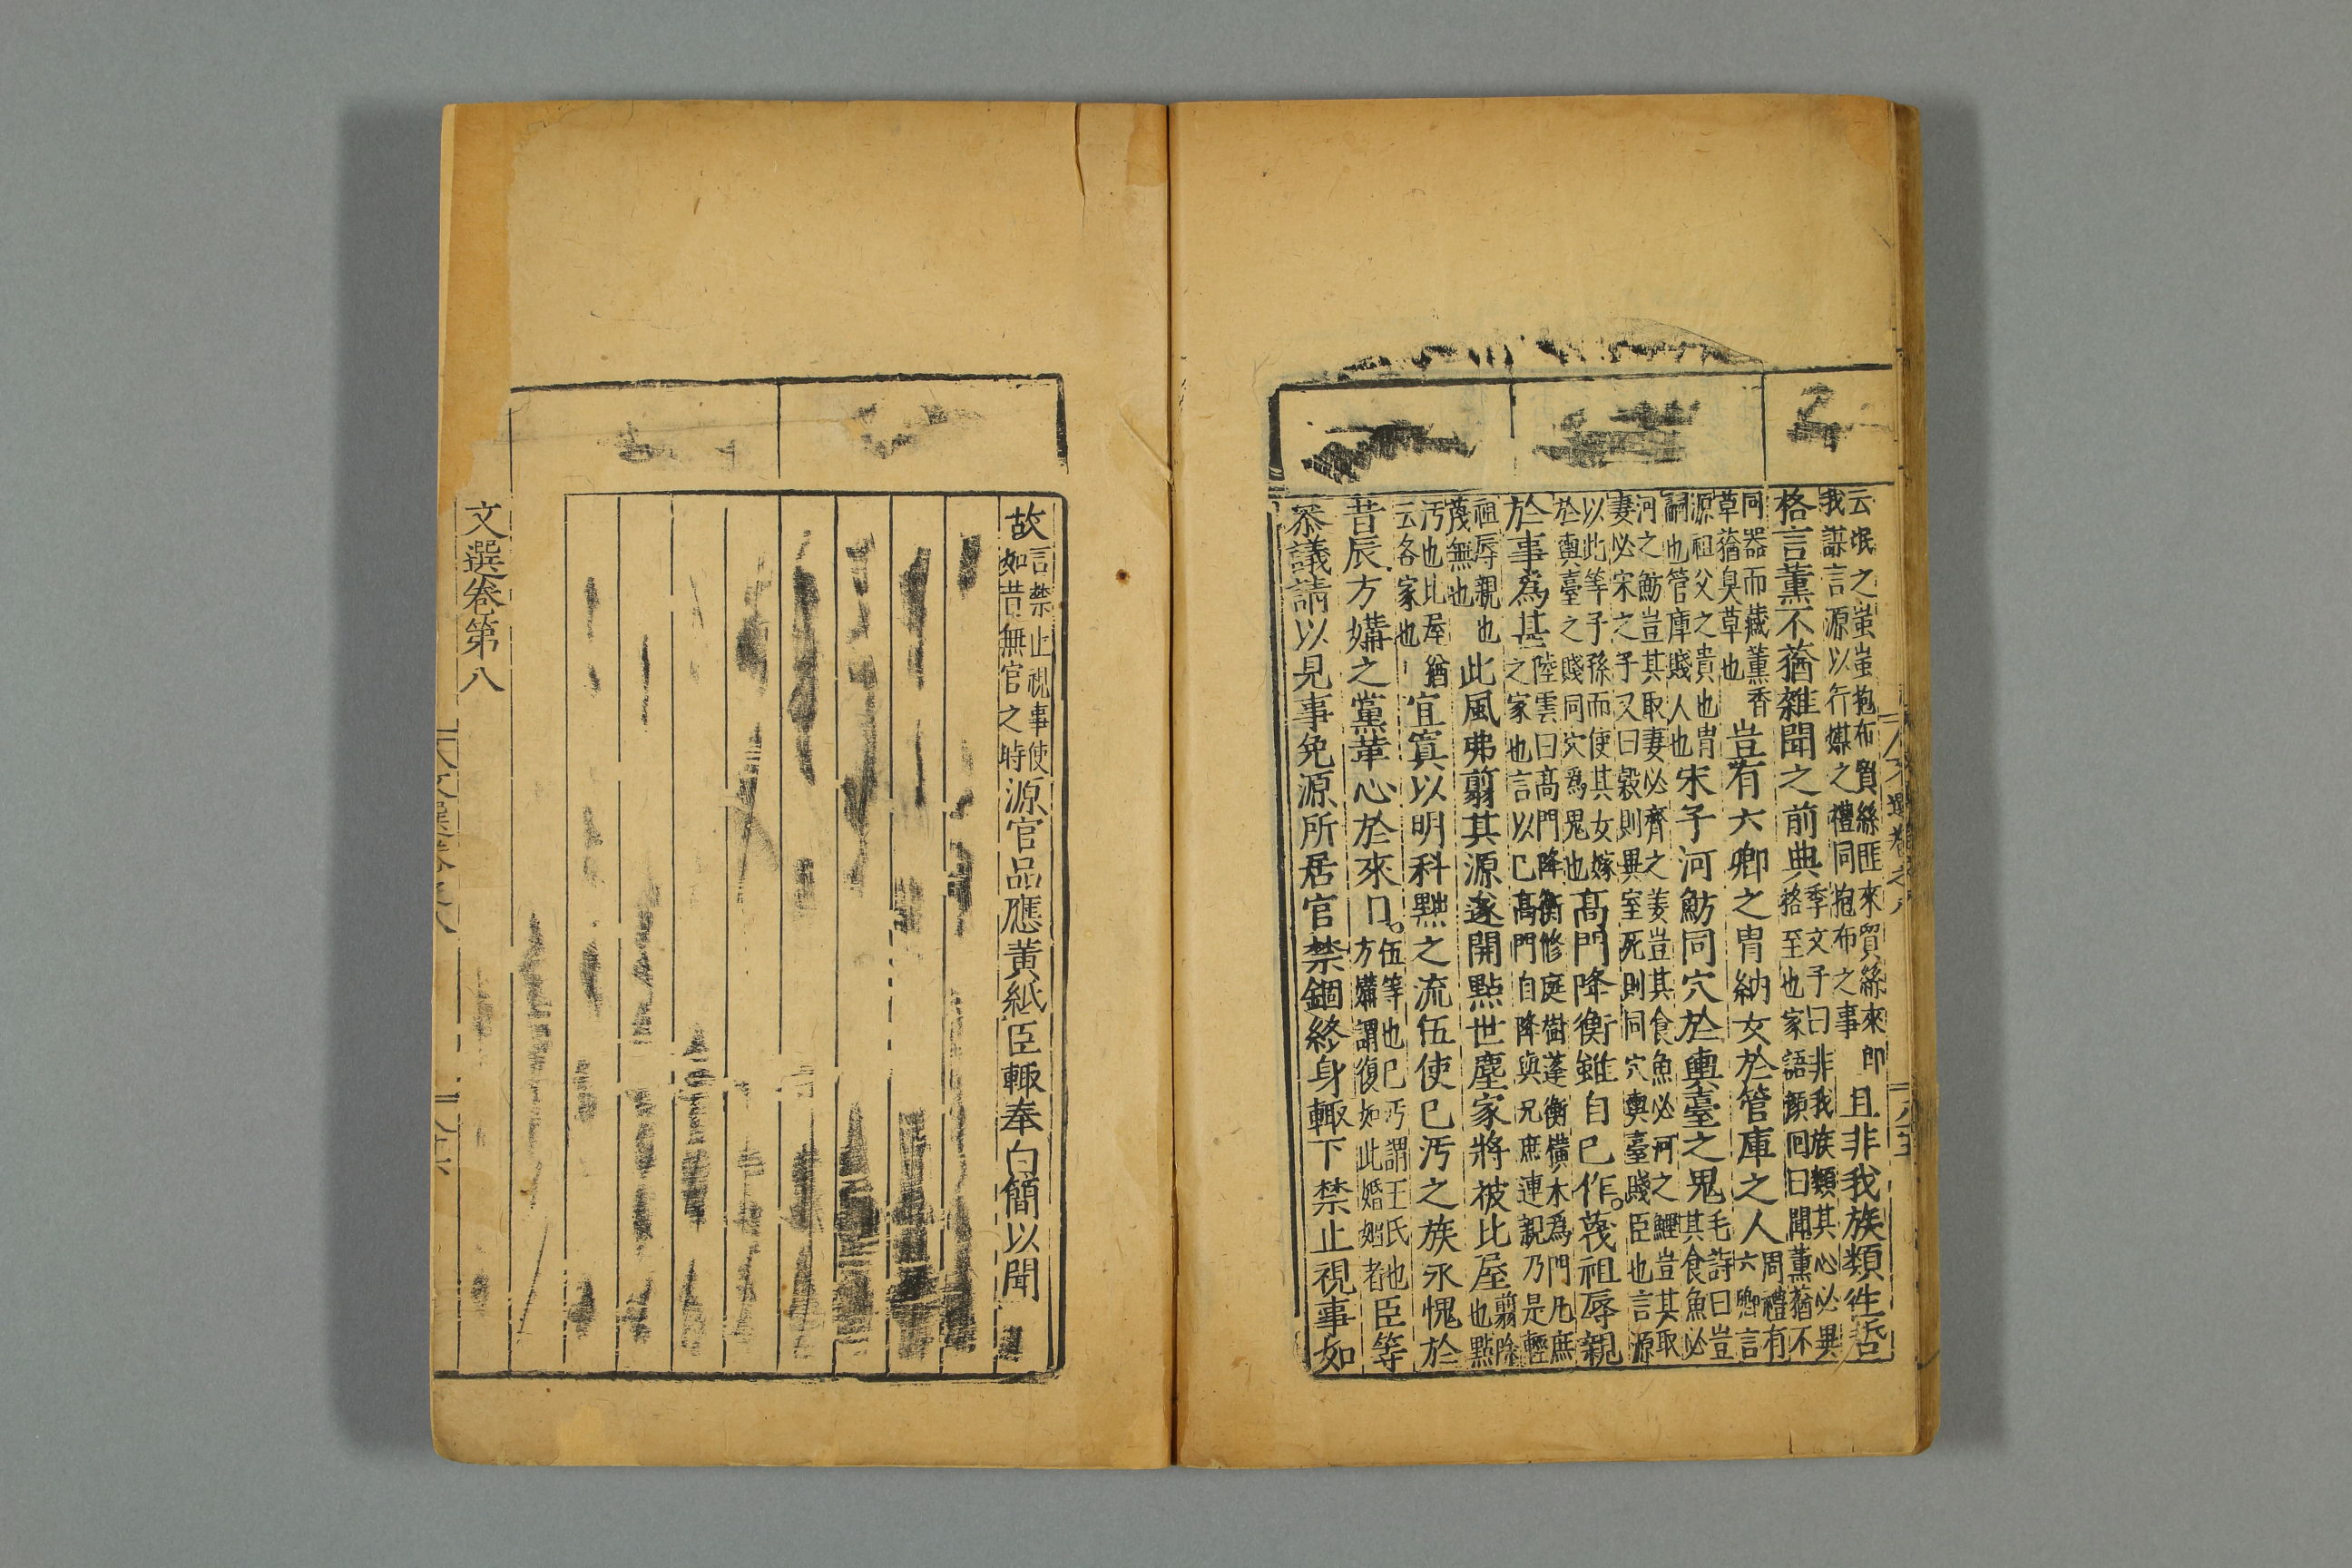 云氓之蚩蚩抱布貿絲匪來貿絲來即
我謀言源以行媒之禮同抱布之事
且非我族類徃哲
格言薰不蕕雜聞之前典
季文子曰非我族類其心必異
格至也家語顏囘曰聞薰蕕不
同器而藏薰香
草蕕臭草也
豈有六卿之冑納女於管庫之人
周禮有
六卿言
源祖父之貴也冑
嗣也管庫賤人也
宋子河魴同穴於輿臺之鬼
毛詩曰豈
其食魚必
河之魴豈其取妻必齊之姜豈其食魚必河之鯉豈其取
妻必宋之子又曰穀則異室死則同穴輿臺賤臣也言源
以此等子孫而使其女嫁
於輿臺之賤同穴爲鬼也
高門降衡雖自己作。蔑祖辱親
於事爲甚
陸雲曰高門降衡修庭樹蓬衡橫木爲門凡庶
之家也言以己高門自降與凡庶連親乃是輕
祖辱親也
蔑無也
此風弗翦其源遂開點世塵家將被比屋
翦除
也點
汚也比屋猶
云各家也
宜寘以明科黜之流伍使已汚之族永愧於
昔辰方媾之黨革心於來日。
伍等也已汚謂王氏也
方媾謂復如此婚姻者
臣等
叅議請以見事免源所居官禁錮終身輙下禁止視事如
故
言禁止視事使
如昔無官之時
源官品應黃紙臣輙奉白簡以聞
文選卷第八